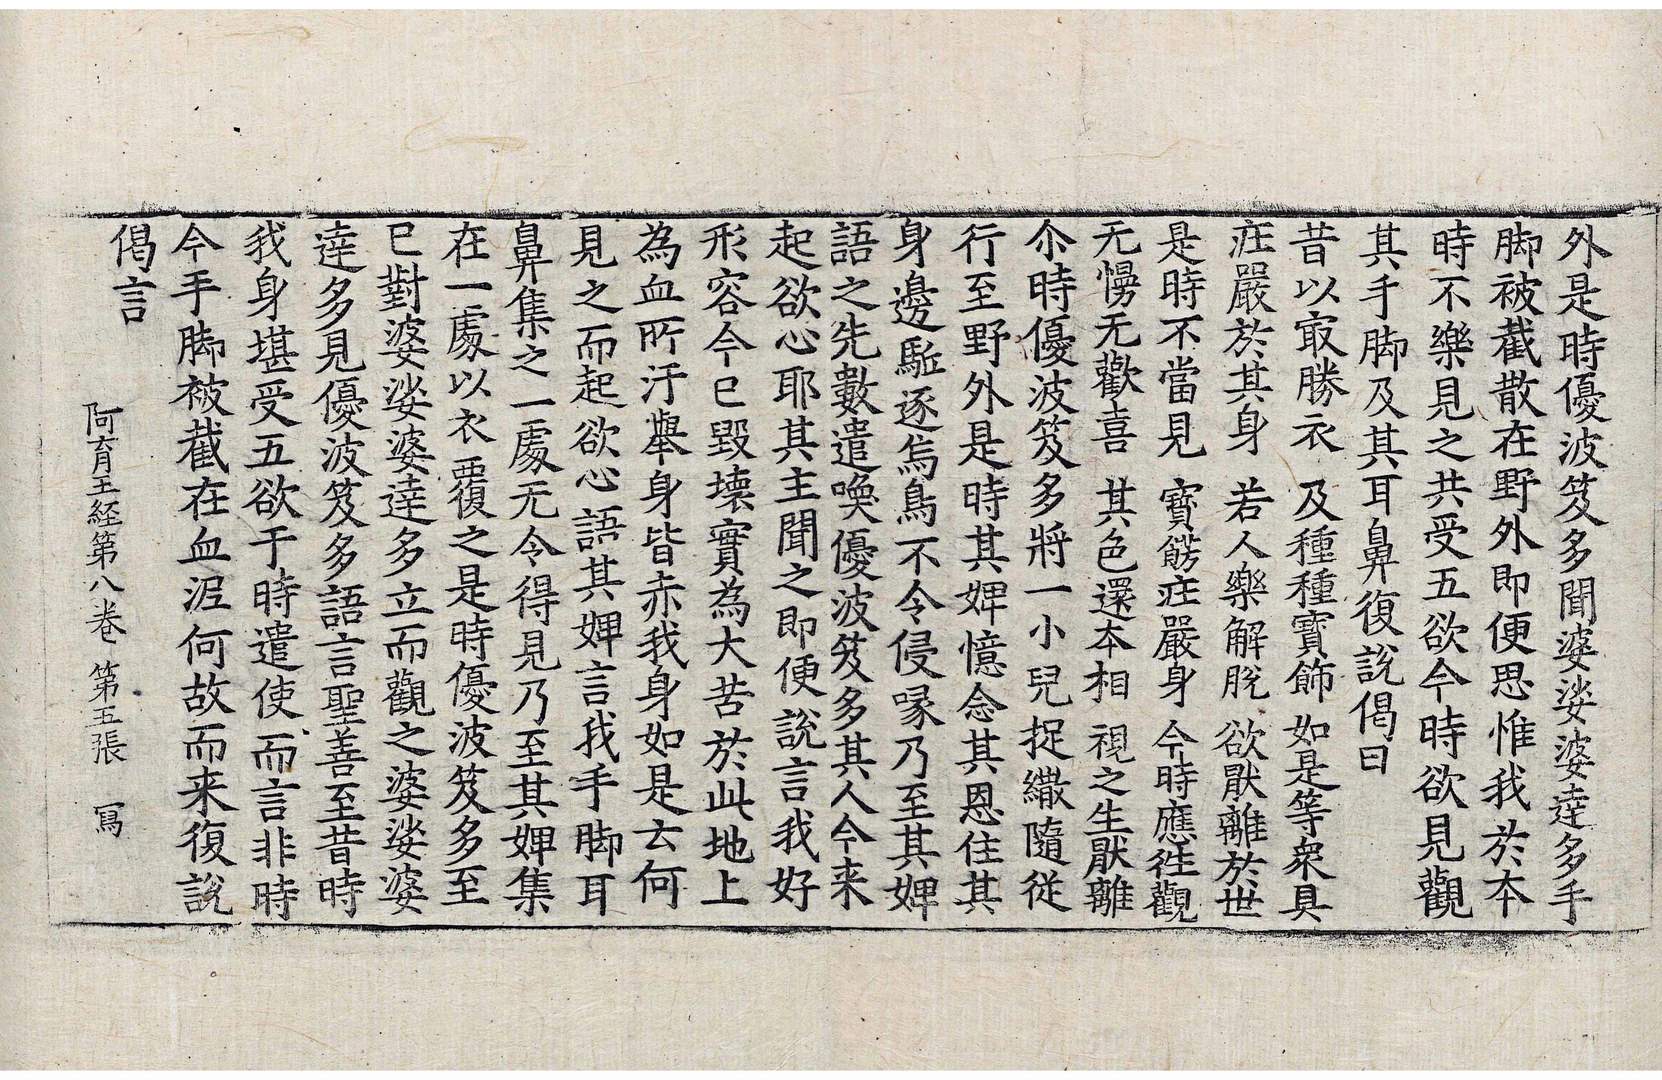 外是時優波笈多聞婆娑婆達多手
脚被截散在野外即便思惟我於本
時不樂見之共受五欲今時欲見觀
其手脚及其耳鼻復說偈曰
昔以㝡勝衣 及種種寶飾 如是等衆具
庄嚴於其身 若人樂解脫 欲厭離於世
是時不當見 寶餝庄嚴身 今時應往觀
无慢无歡喜 其色還本相 視之生厭離
尒時優波笈多將一小兒捉繖隨従
行至野外是時其婢憶念其恩住其
身邊駈逐烏鳥不令侵喙乃至其婢
語之先數遣喚優波笈多其人今来
起欲心耶其主聞之即便說言我好
形容今已毀壞實為大苦於此地上
為血所汙舉身皆赤我身如是云何
見之而起欲心語其婢言我手脚耳
鼻集之一處无令得見乃至其婢集
在一處以衣覆之是時優波笈多至
已對婆娑婆達多立而觀之婆娑婆
達多見優波笈多語言聖善至昔時
我身堪受五欲于時遣使而言非時
今手脚被截在血泥何故而来復說
偈言
阿育王経第八卷 第五張 寫